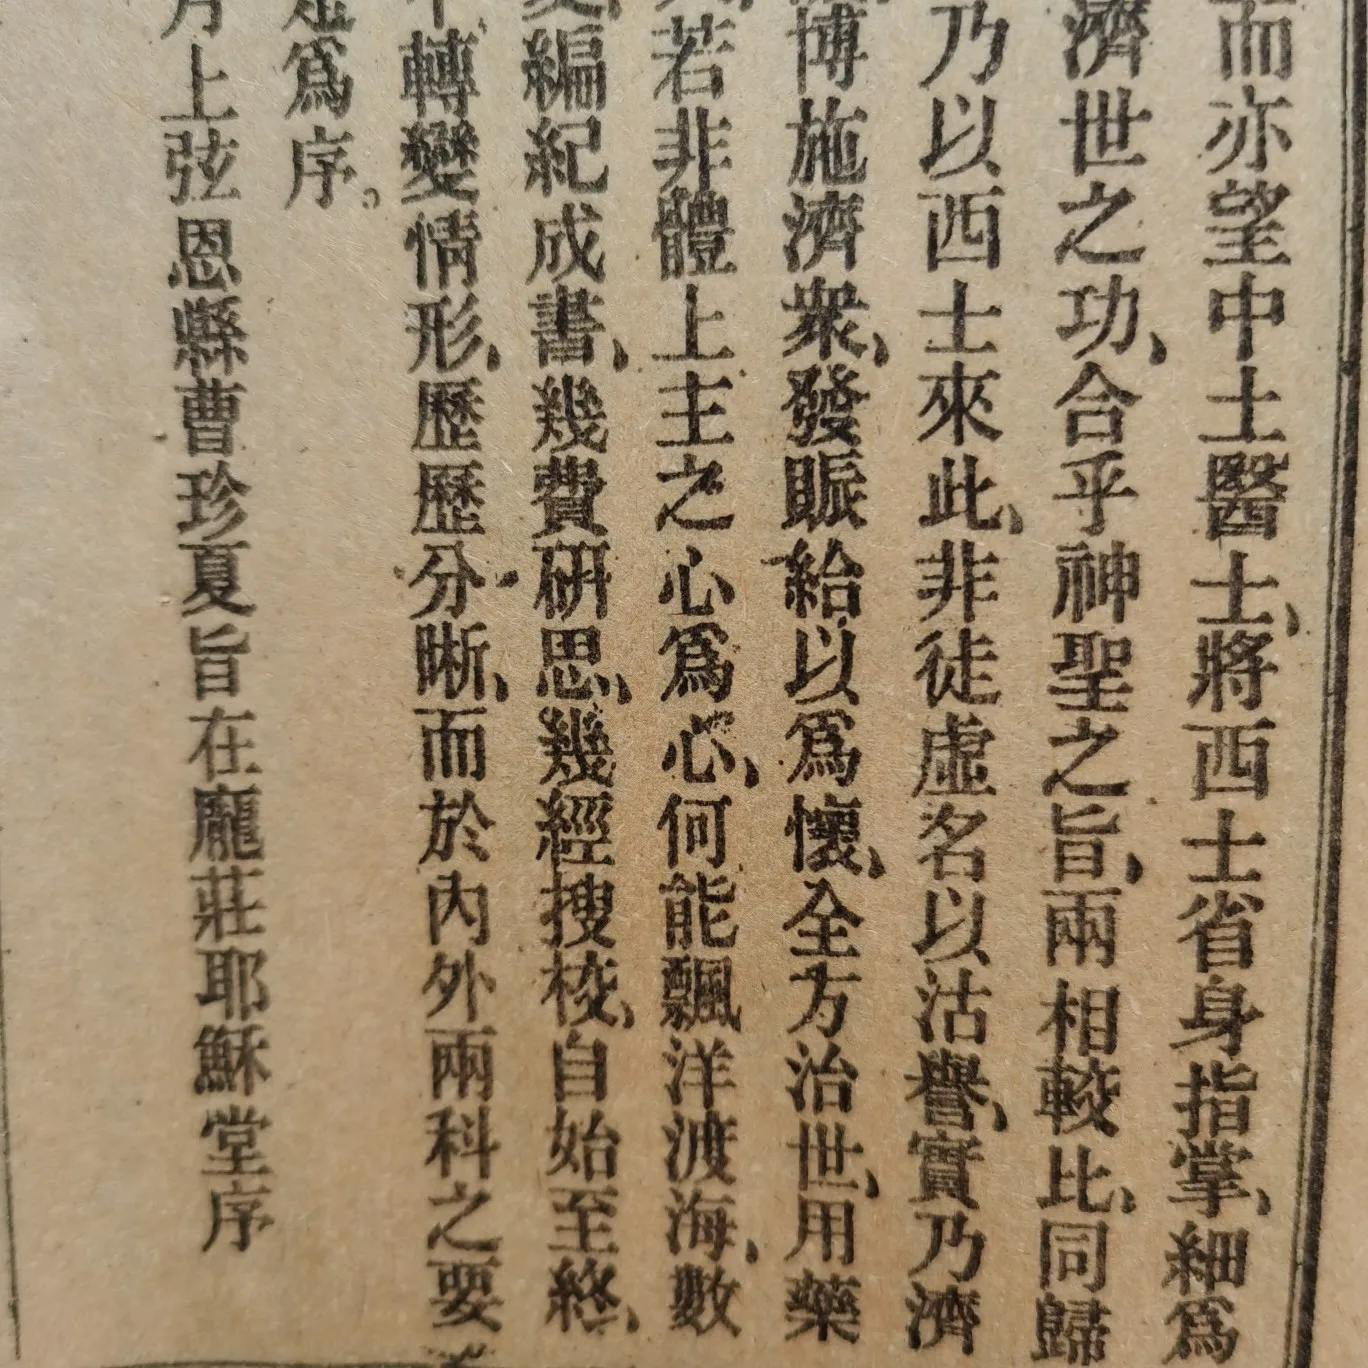 而亦望中土醫士、將西士省身指掌、細爲
濟世之功、合乎神聖之旨、兩相較比、同歸
乃以西士來此、非徒虛名以沽譽、實乃濟
博施濟衆、發賑給以爲懷、全方治世、用藥
若非體上主之心爲心、何能飄洋渡海、數
編紀成書、幾費研思、幾經搜校、自始至終、
轉變情形、歷歷分晰、而於內外兩科之要
爲序。
月上弦恩縣曹珍夏旨在龐莊耶穌堂序